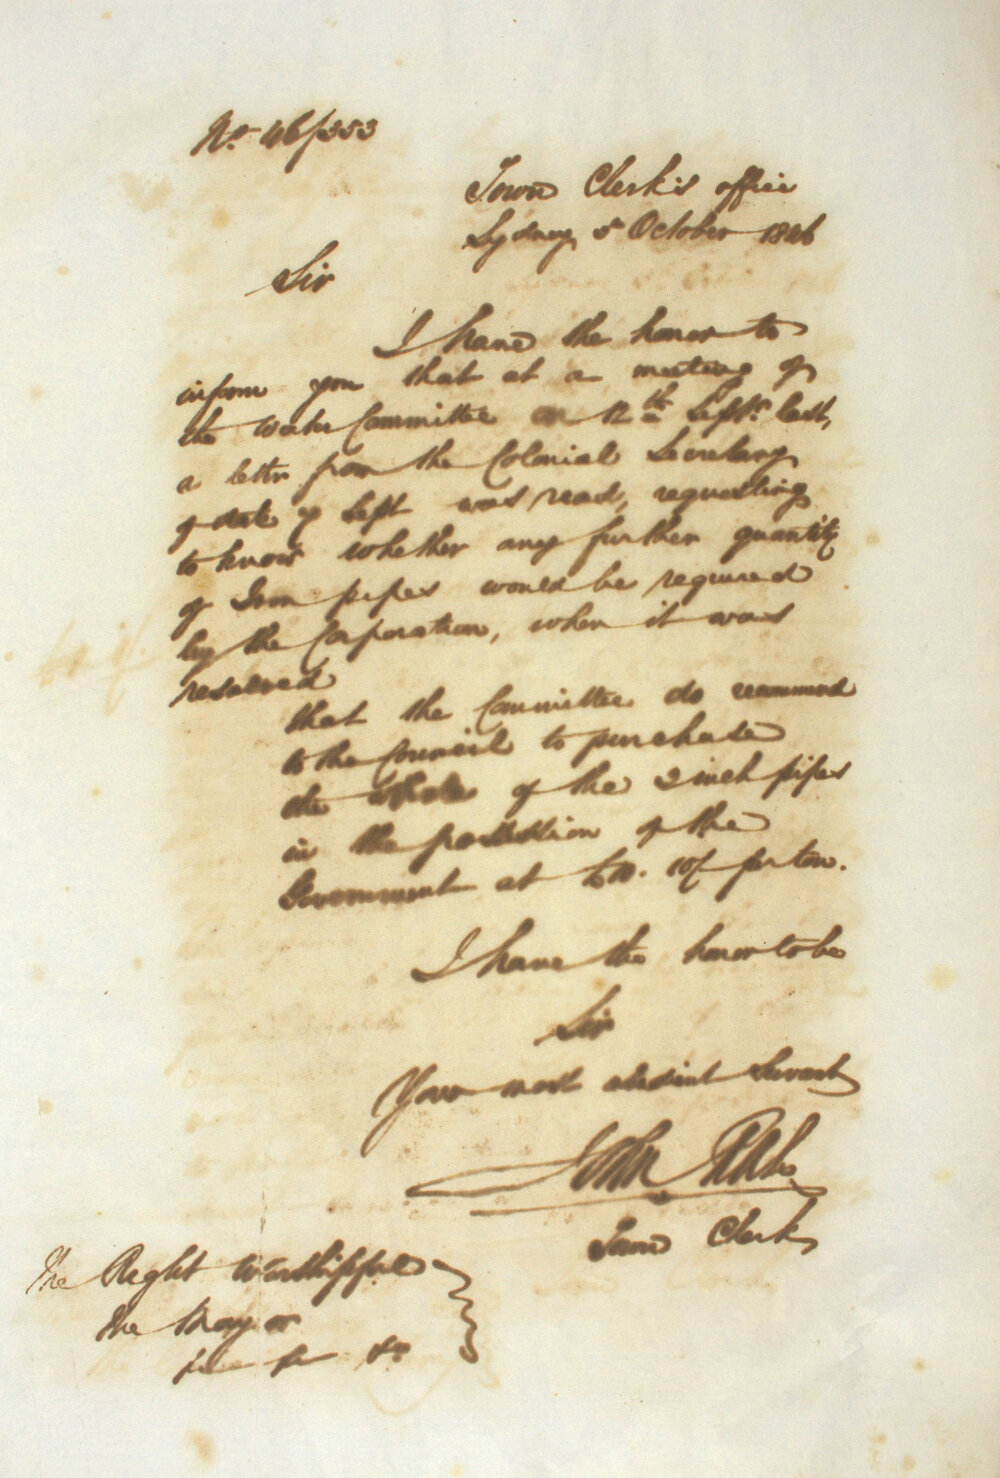 No. 46/353
Town Clerk's office
Sydney 5 October 1846
Sir
I have the honor to
inform you that at a meeting of
the Water Committee on 12th Septr. last,
a letter from the Colonial Secretary
of date 9 Sept was read, requesting
to know whether any further quantity
of Iron pipes would be required
by the Corporation, when it was
resolved
that the Committee do recommend
to the Council to purchase
the whole of the 3 inch pipes
in the possession of the
Government at 10/ per ton.
I have the honor to be
Sir
Your most obedient Servant
John Rae
Town Clerk
The Right Worshipful
The Mayor